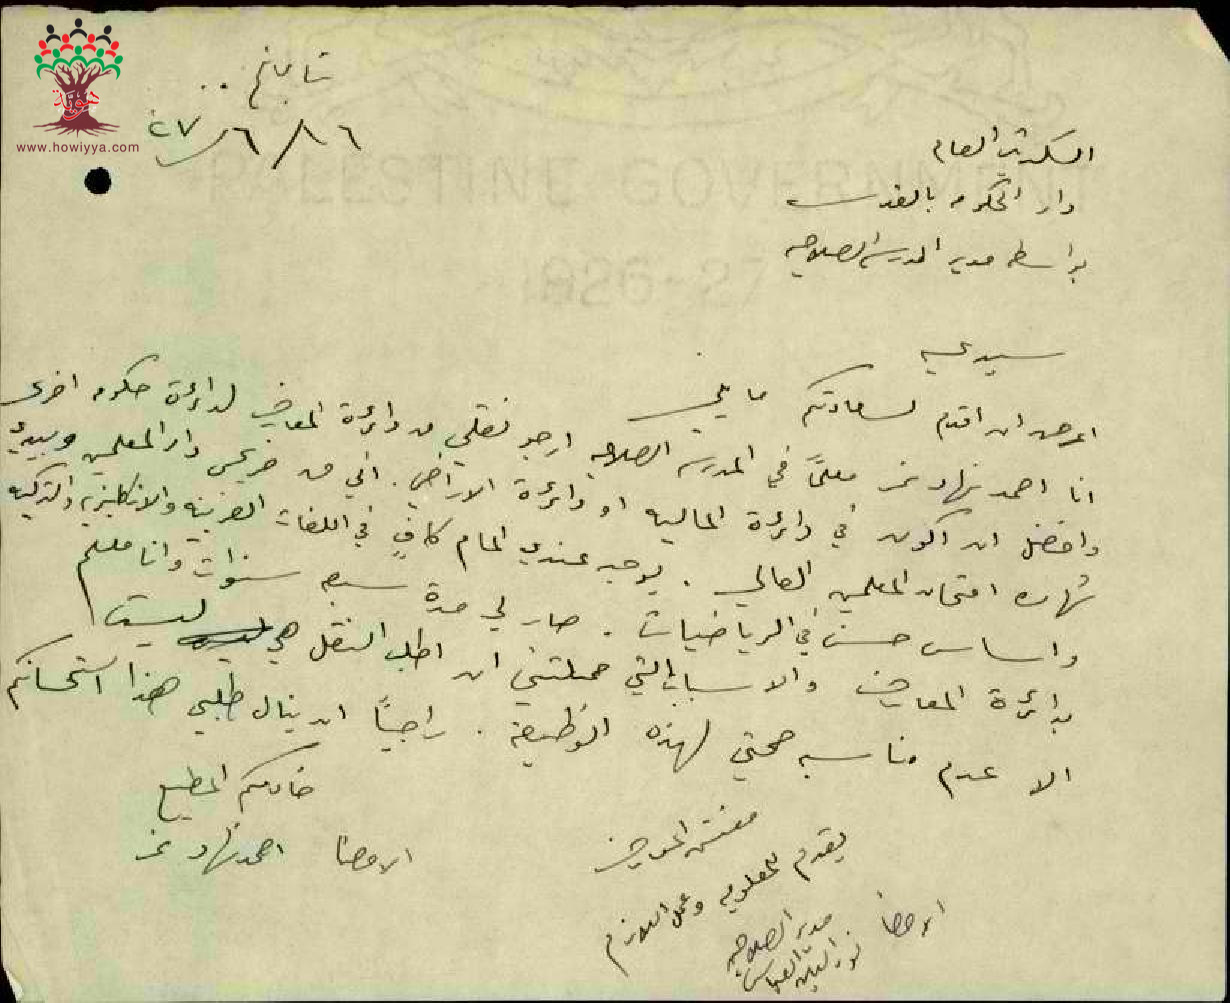 هوية
www.howiyya.com
نابلس ..
٢٧/٦/١٦
PALESTINE GOVERNMENT
1926-27
السكرتير العام
دار الحكومه بالقدس
بواسطه مدير المدرسه الصلاحيه
سيدي
اعرض ان اقدم لسعادتكم ما يلي
انا احمد نهاد نمر معلماً في المدرسه الصلاحيه ارجو نقلي من دائرة المعارف لدائرة حكومه اخرى
وافضل ان اكون في دائرة الماليه او دائرة الاراضي . اني من خريجي دار المعلمين وبيدي
شهاده امتحان المعلمين العالي . يوجد عندي المام كافٍ في اللغات العربيه والانكليزيه والتركيه
واساس حسن في الرياضيات . صار لي مدة سبع سنوات وانا معلم
بدائرة المعارف والاسباب التي حملتني ان اطلب النقل هي ليست
الا عدم مناسبه صحتي لهذه الوظيفة . راجياً ان ينال طلبي هذا استحسانكم
خادمكم المطيع
الامضا احمد نهاد نمر
مفتش المعارف
يقدم للمعلوميه وعمل اللازم
امضا
مدير الصلاحيه
نور الدين العباسي